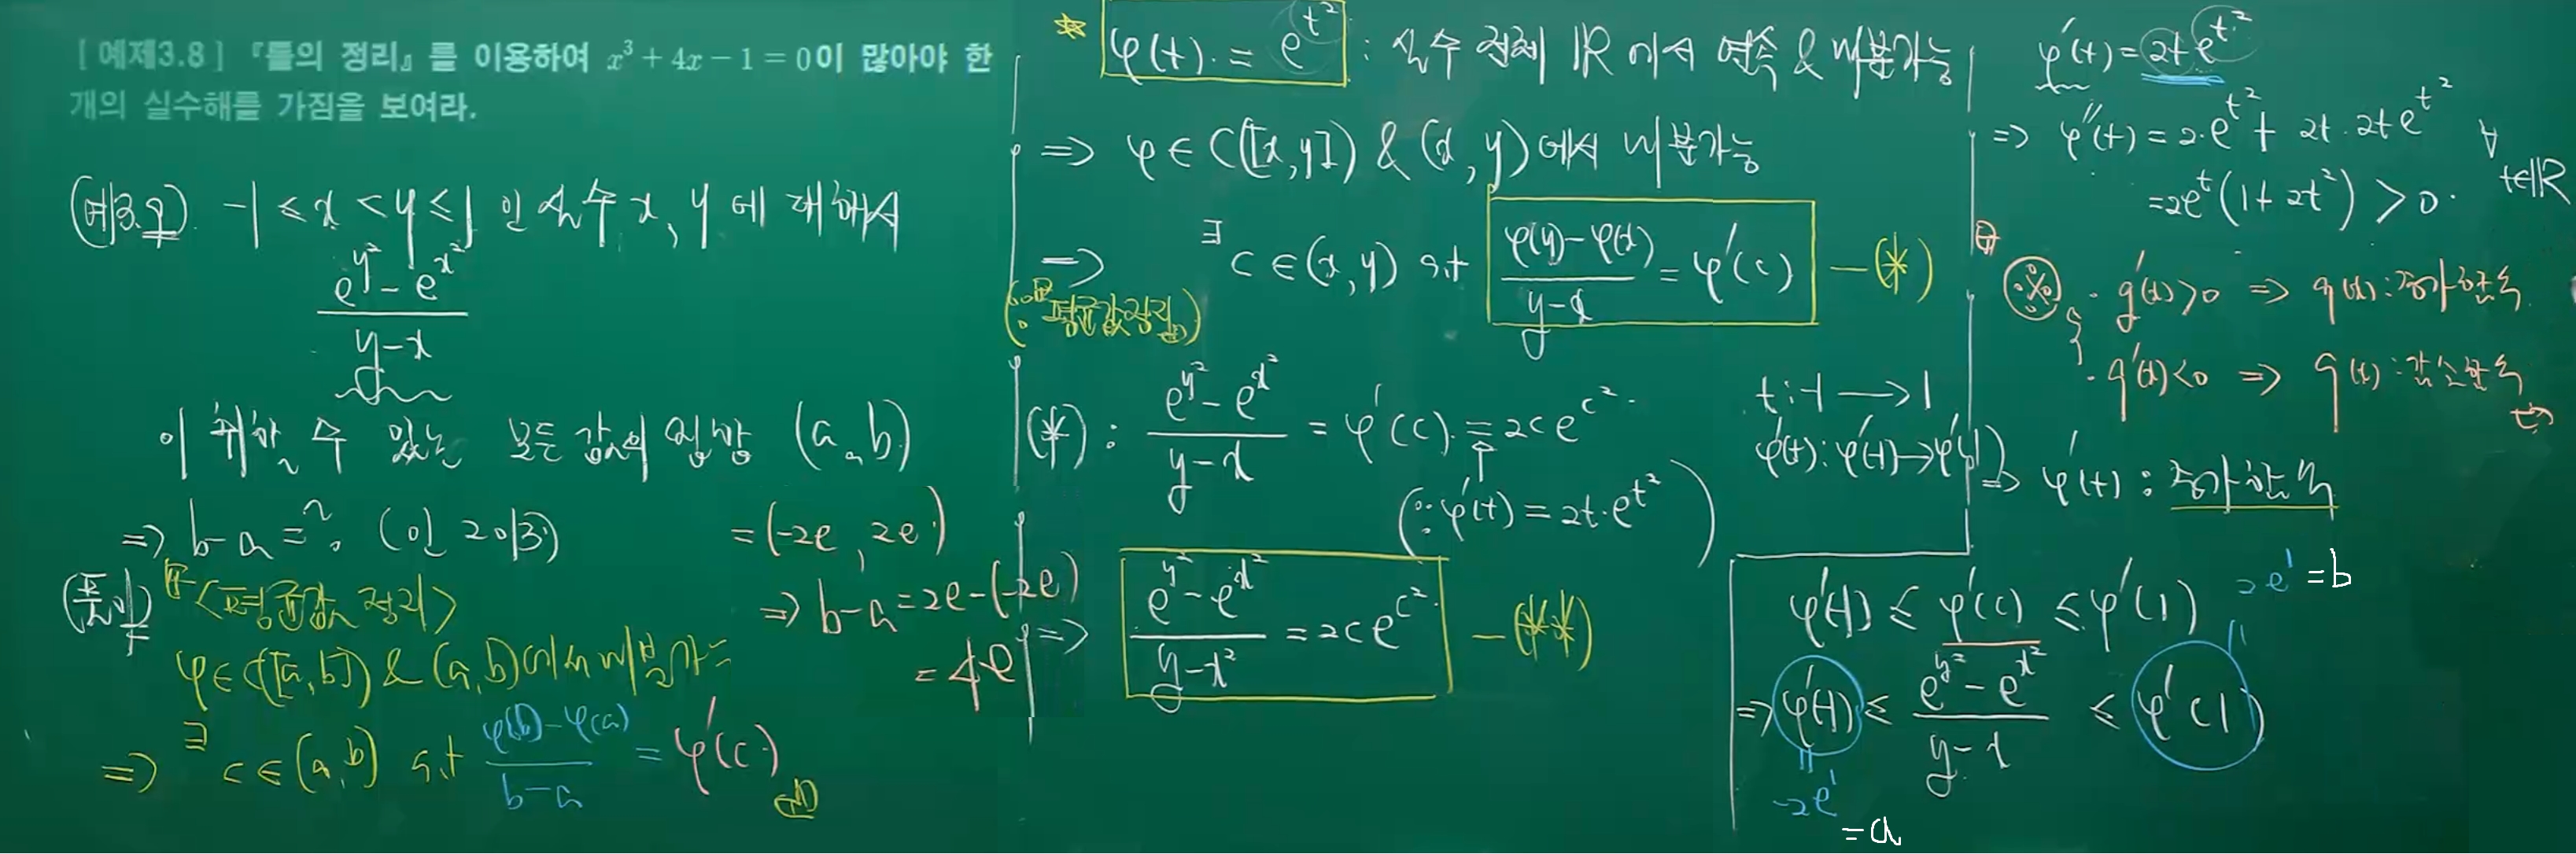 [예제3.8] 『롤의 정리』를 이용하여 x³ + 4x − 1 = 0이 많아야 한
개의 실수해를 가짐을 보여라.
(예3.9) -1 ≤ x < y ≤ 1 인 실수 x, y 에 대해서
(e^{y²} - e^{x²}) / (y - x)
이 취할 수 있는 모든 값의 집합 (a, b)
⇒ b - a = ? (인 2013)
= (-2e, 2e)
⇒ b - a = 2e - (-2e)
= 4e
(풀이) <평균값 정리>
φ ∈ C([a, b]) & (a, b)에서 미분가능
⇒ ∃ c ∈ (a, b) s.t (φ(b) - φ(a)) / (b - a) = φ'(c)
☆ φ(t) = e^{t²} : 실수 전체 ℝ에서 연속 & 미분가능
⇒ φ ∈ C([x, y]) & (x, y)에서 미분가능
⇒ ∃ c ∈ (x, y) s.t (φ(y) - φ(x)) / (y - x) = φ'(c) — (*)
(∵ 평균값정리)
(*) : (e^{y²} - e^{x²}) / (y - x) = φ'(c) = 2c e^{c²}
(∵ φ'(t) = 2t · e^{t²})
⇒ (e^{y²} - e^{x²}) / (y - x²) = 2c e^{c²} — (**)
φ'(t) = 2t e^{t²}
⇒ φ''(t) = 2 · e^{t²} + 2t · 2t e^{t²} ∀ t∈ℝ
= 2e^t (1 + 2t²) > 0
※ · g'(x) > 0 ⇒ g(x) : 증가함수
· g'(x) < 0 ⇒ g(x) : 감소함수
t : -1 → 1
φ'(t) : φ'(-1) → φ'(1)
⇒ φ'(t) : 증가함수
φ'(-1) ≤ φ'(c) ≤ φ'(1) 2e¹ = b
⇒ φ'(-1) ≤ (e^{y²} - e^{x²}) / (y - x) ≤ φ'(1)
-2e¹
= a